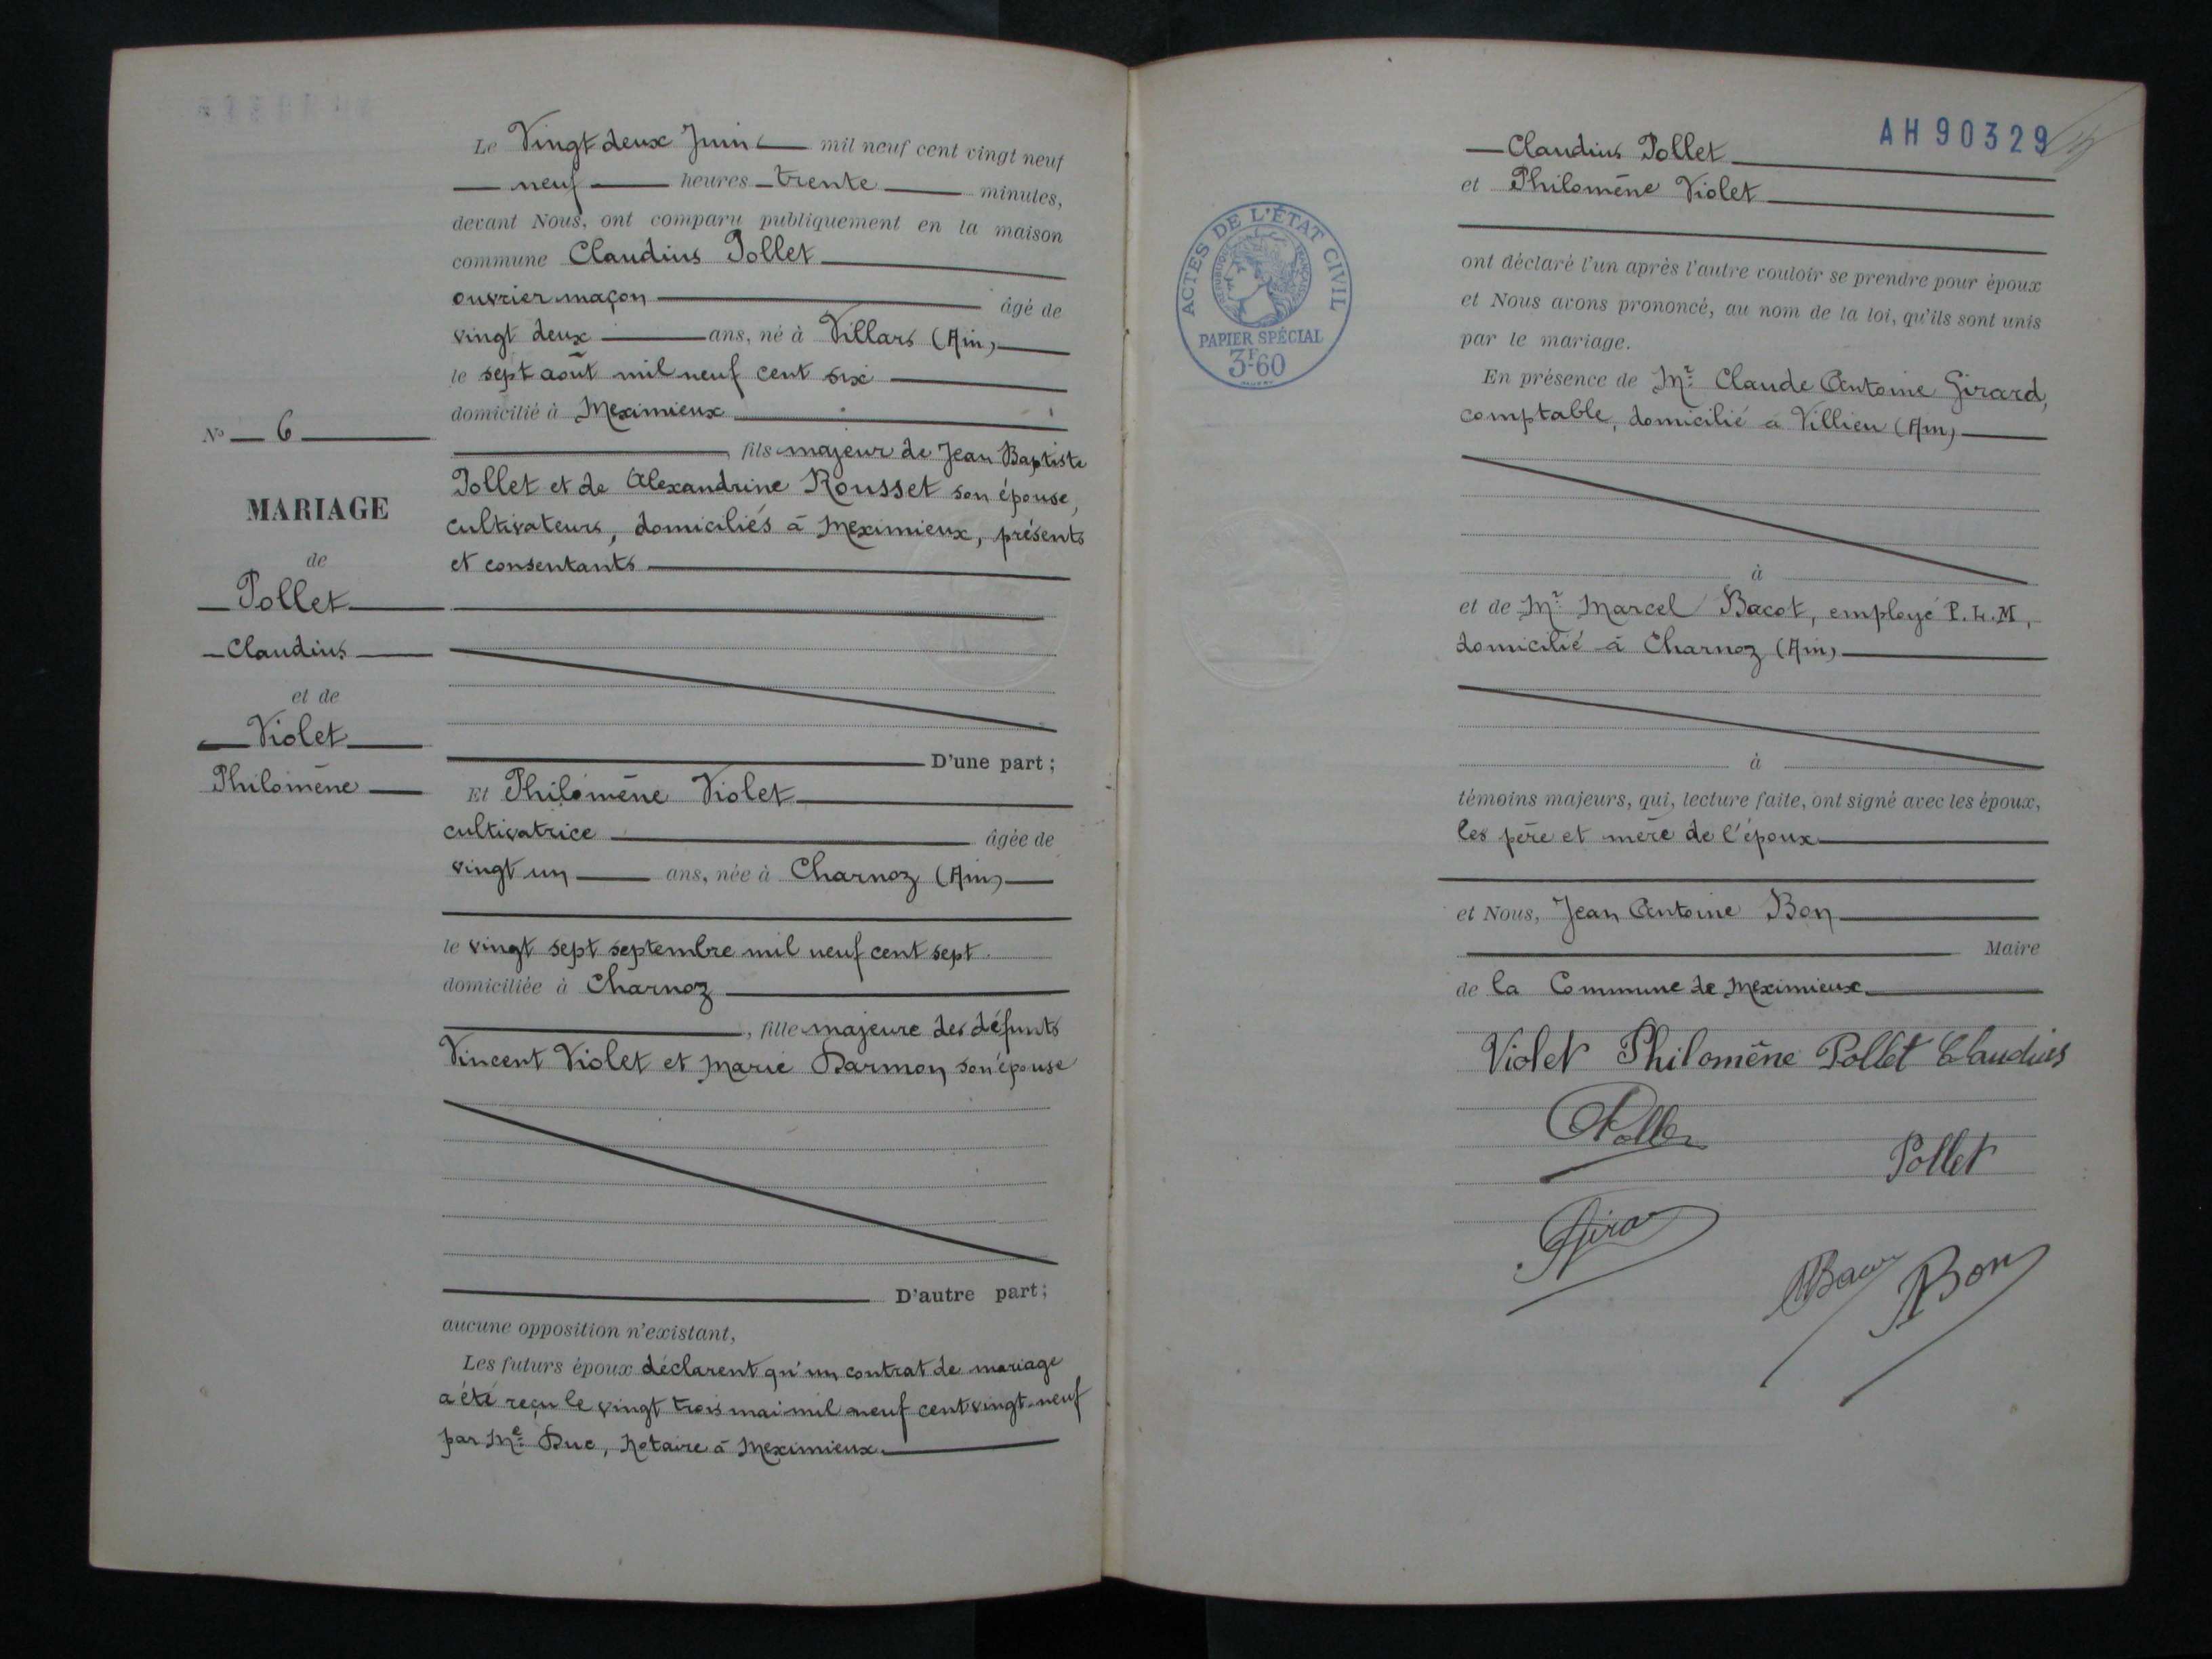 Le Vingt deux Juin mil neuf cent vingt neuf
neuf heures trente minutes,
devant Nous, ont comparu publiquement en la maison
commune Claudius Pollet
ouvrier maçon âgé de
vingt deux ans, né à Villars (Ain)
le sept août mil neuf cent six
domicilié à Meximieux
fils majeur de Jean Baptiste
Pollet et de Alexandrine Rousset son épouse,
cultivateurs, domiciliés à Meximieux, présents
et consentants
N° 6
MARIAGE
de
Pollet
Claudius
et de
Violet
Philomène
D'une part ;
Et Philomène Violet
cultivatrice âgée de
vingt un ans, née à Charnoz (Ain)
le vingt sept septembre mil neuf cent sept
domiciliée à Charnoz
, fille majeure des défunts
Vincent Violet et Marie Darmon son épouse
D'autre part ;
aucune opposition n'existant,
Les futurs époux déclarent qu'un contrat de mariage
a été reçu le vingt trois mai mil neuf cent vingt-neuf
par Me Duc, Notaire à Meximieux
AH90329
Claudius Pollet
et Philomène Violet
ACTES DE L'ÉTAT CIVIL
RÉPUBLIQUE FRANÇAISE
PAPIER SPÉCIAL
3F60
ont déclaré l'un après l'autre vouloir se prendre pour époux
et Nous avons prononcé, au nom de la loi, qu'ils sont unis
par le mariage.
En présence de Mr Claude Antoine Girard,
comptable, domicilié à Villieu (Ain)
à
et de Mr Marcel Bacot, employé P.L.M,
domicilié à Charnoz (Ain)
à
témoins majeurs, qui, lecture faite, ont signé avec les époux,
les père et mère de l'époux
et Nous, Jean Antoine Bon
Maire
de la Commune de Meximieux
Violet Philomène Pollet Claudius
Pollet
Bon